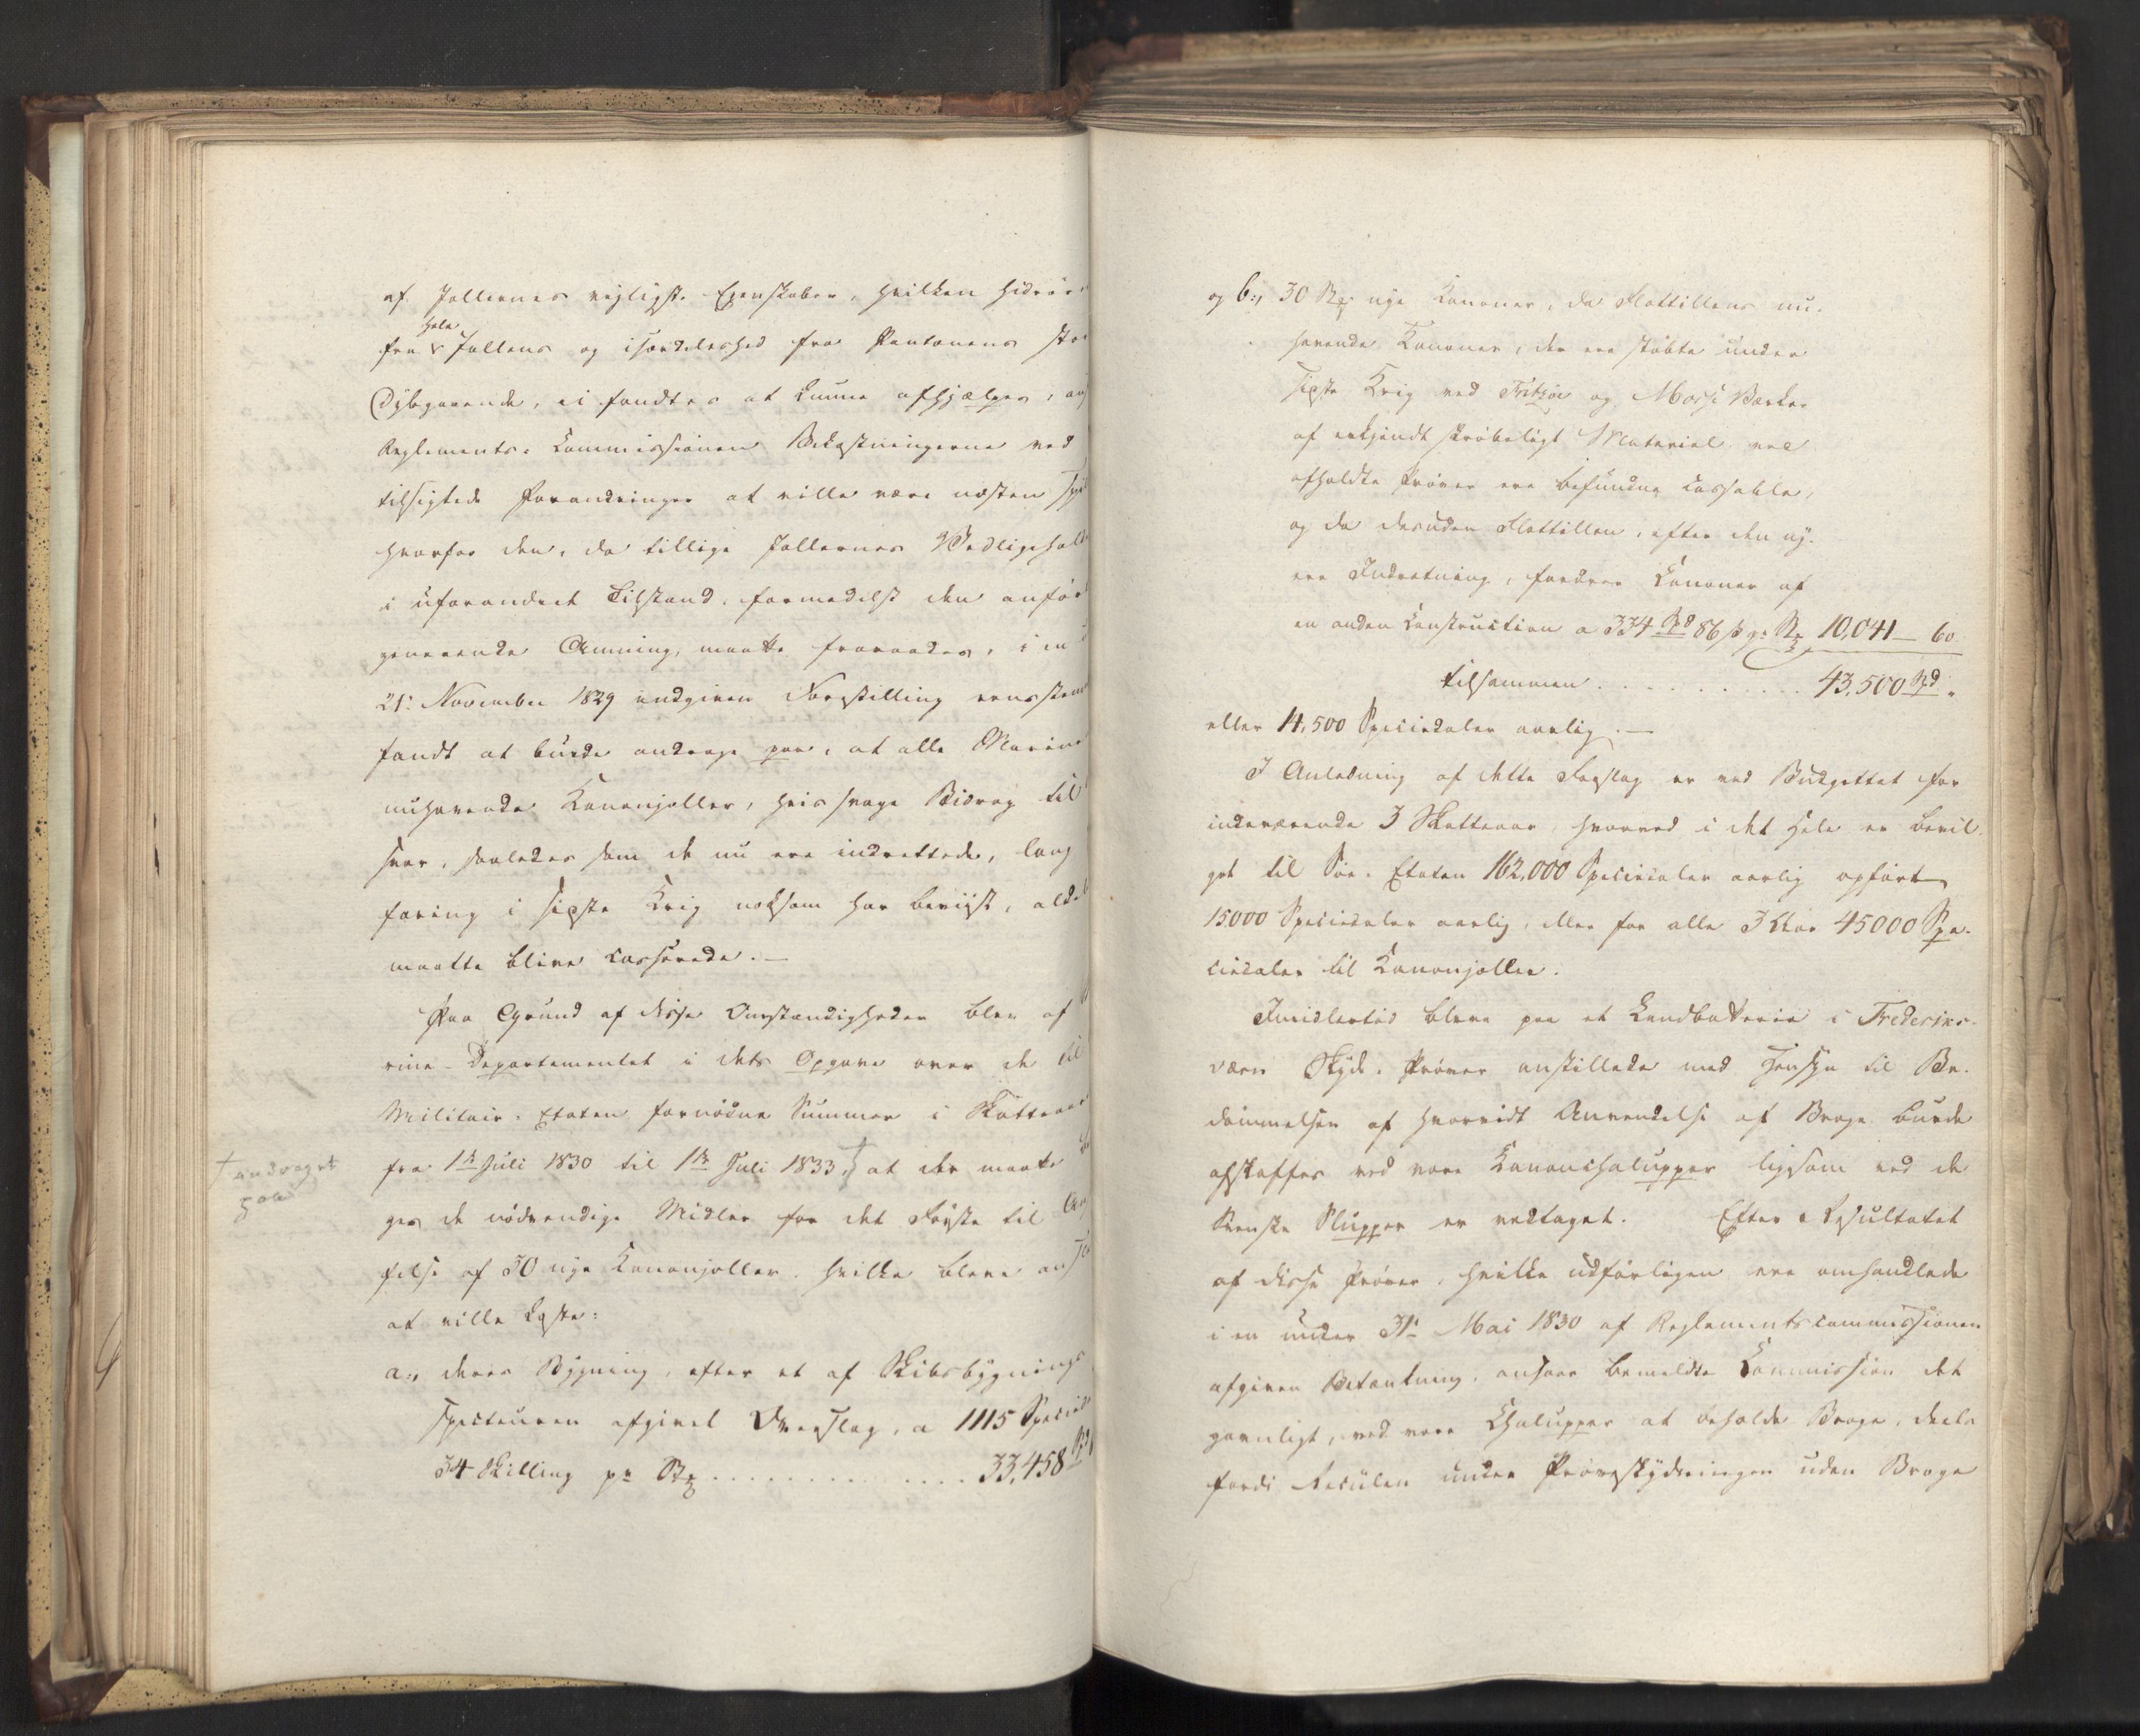 af Jollernes vigtigste Egenskaber, hvilken hidrører
hele
fra Jollens og isærdeleshed fra Pontonens store
Dybgaaende, ei fandtes at kunne afhjælpes, an
Reglements-Commissionen Bekostningerne ved
tilsigtede Forandringer at ville være næsten spil
hvorfor den, da tillige Jollernes Vedligehold
i uforandret Tilstand, formedelst den anfør
generende Anning, maatte fraraades, i en
21. November 1829 indgiven Forestilling eensstem
fandt at burde andrage paa, at alle Marine
nuhavende Kanonjoller, hvis svage Bidrag til
svar, saaledes som de nu ere indrettede, lang
faring i sidste Krig noksom har beviist, alde
maatte blive casserede. —
Paa Grund af disse Omstændigheder blev af
rine-Departementet i dets Opgave over de til
Militair-Etaten fornødne Summer i Skatteaar
fra 1ste Juli 1830 til 1ste Juli 1833 † at der maatte
† andraget
paa
ges de nødvendige Midler for det Første til An
felse af 30 nye Kanonjoller, hvilke bleve ansl
at ville koste:
a., deres Bygning, efter et af Skibsbygnings
specteuren afgivet Overslag, a 1115 Specied
34 Skilling pr St . . . . . . . . . . . . . 33,458 Spd
og b., 30 St. nye Kanoner, da Flottillens nu-
havende Kanoner, der ere støbte under
sidste Krig ved Fritzøe og Mossе Værker
af erkjendt skrøbeligt Material ved
afholdte Prøver ere befundne cassable,
og da desuden Flottillen, efter den ny-
ere Indretning, fordrer Kanoner af
en anden Construction a 334 Spd 86 ß pr St 10,041 — 60
tilsammen . . . . . . . . . . . 43,500 Spd „
eller 14,500 Speciedaler aarlig. —
I Anledning af dette Forslag er ved Budgettet for
indeværende 3 Skatteaar, hvorved i det Hele er bevil-
get til Søe-Etaten 162,000 Speciedaler aarlig opført
15000 Speciedaler aarlig, eller for alle 3 Aar 45000 Spe-
ciedaler til Kanonjoller.
Imidlertid bleve paa et Landbatterie i Frederiks-
værn Skyde-Prøver anstillede med Hensyn til Be-
dømmelsen af hvorvidt Anvendelse af Broge burde
afskaffes ved vore Kanonchalupper ligesom ved de
Svenske Slupper er vedtaget. Efter Resultatet
af disse Prøver, hvilke udførligen ere omhandlede
i en under 31. Mai 1830 af Reglementscommissionen
afgiven Betænkning, ansaae bemeldte Commission det
gavnligt, ved vore Chalupper at beholde Broge, deels
fordi Recülen under Prøveskydningen uden Broge